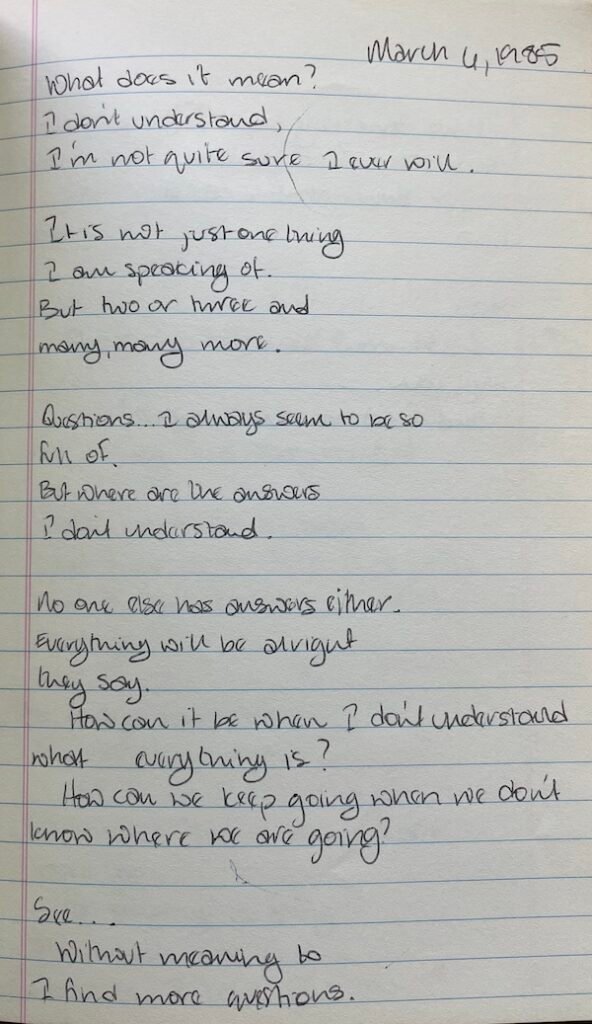 March 4, 1985
What does it mean?
I don't understand,
I'm not quite sure I ever will.
It is not just one thing
I am speaking of.
But two or three and
many, many more.
Questions... I always seem to be so
full of.
But where are the answers
I don't understand.
No one else has answers either.
Everything will be alright
they say.
How can it be when I don't understand
what everything is?
How can we keep going when we don't
know where we are going?
See...
Without meaning to
I find more questions.